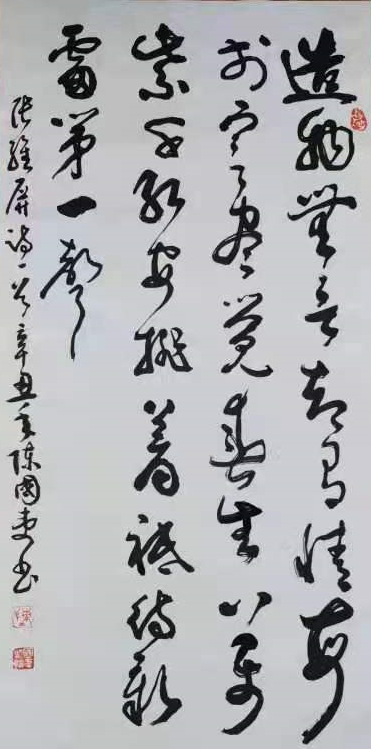 造物無言却有情每
於寒尽觉春生萬
紫千红安排着祗待新
雷第一聲
张維屏诗一首辛丑年陈國书